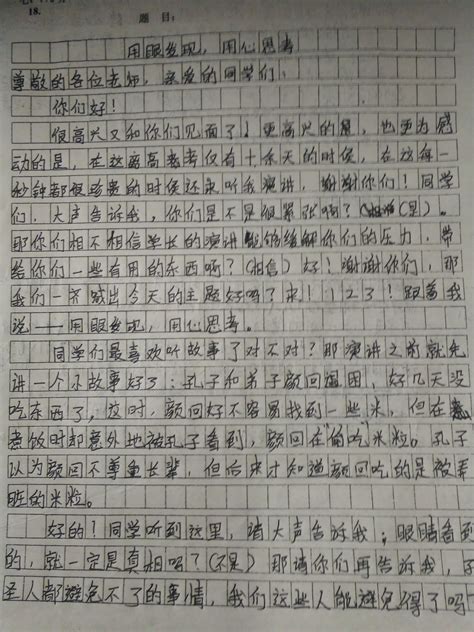 18.
题 目：
用眼发现，用心思考
尊敬的各位老师，亲爱的同学们：
你们好！
很高兴又和你们见面了！更高兴的是，也更为感
动的是，在这离高考仅有十余天的时候，在这每一
秒钟都很珍贵的时候还来听我演讲，谢谢你们！同学
们，大声告诉我，你们是不是很紧张啊？（是）。
那你们相不相信学长的演讲能够缓解你们的压力，带
给你们一些有用的东西啊？（相信）好！谢谢你们，那
我们一齐喊出今天的主题好吗？来！123！跟着我
说——用眼发现，用心思考。
同学们最喜欢听故事了对不对？那演讲之前就先
讲一个小故事好了：孔子和弟子颜回遇困，好几天没
吃东西了，这时，颜回好不容易找到一些米，但在
煮饭时却意外地被孔子看到，颜回在"偷吃"米粒。孔子
以为颜回不尊重长辈，但后来才知道颜回吃的是被弄
脏的米粒。
好的！同学听到这里，请大声告诉我：眼睛看到
的，就一定是真相吗？（不是）那请你们再告诉我，
圣人都避免不了的事情，我们这些人能避免得了吗